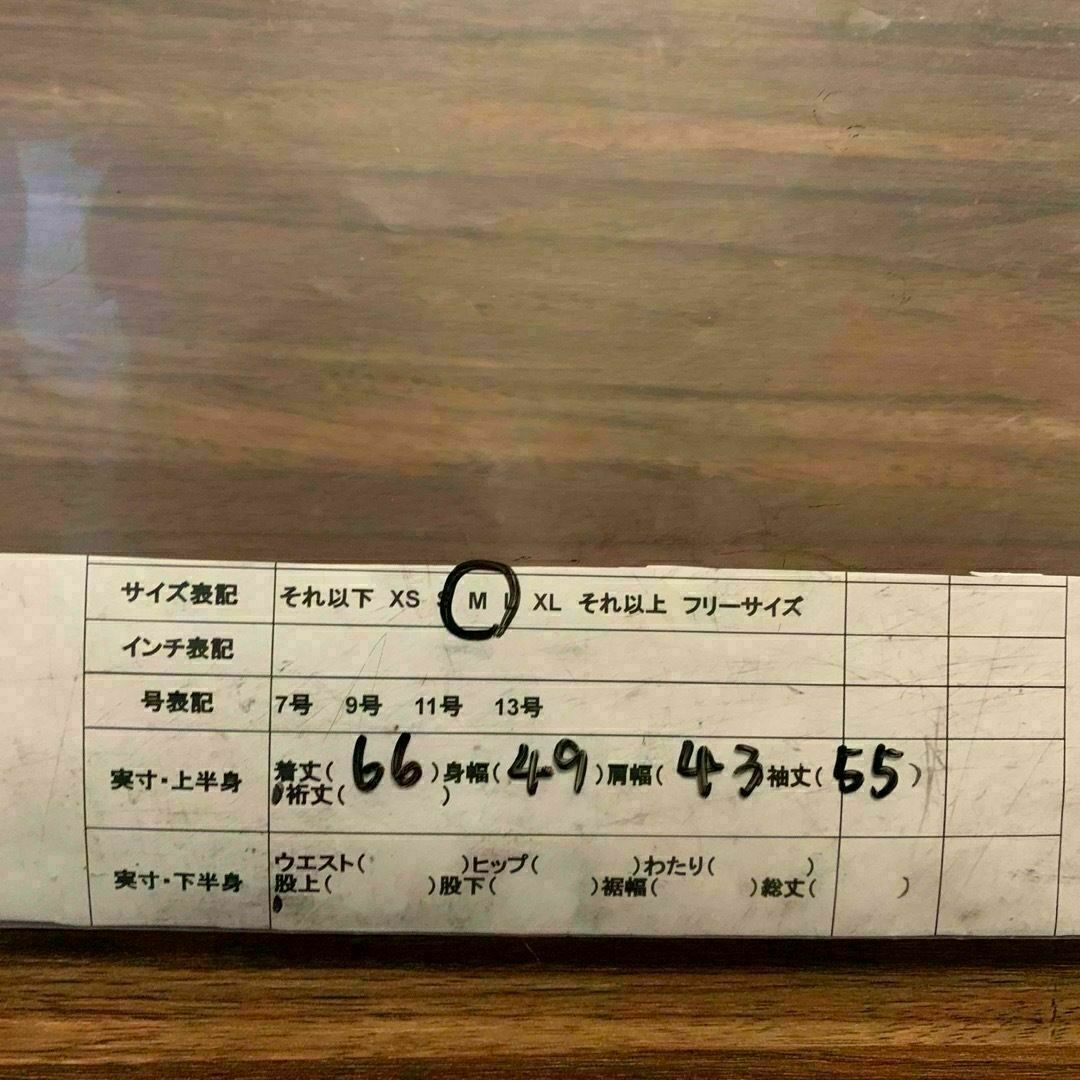 サイズ表記 それ以下 XS S M L XL それ以上 フリーサイズ
インチ表記
号表記 7号 9号 11号 13号
実寸・上半身 着丈( 66 )身幅( 49 )肩幅( 43 )袖丈( 55 )
裄丈( )
実寸・下半身 ウエスト( )ヒップ( )わたり( )
股上( )股下( )裾幅( )総丈( )